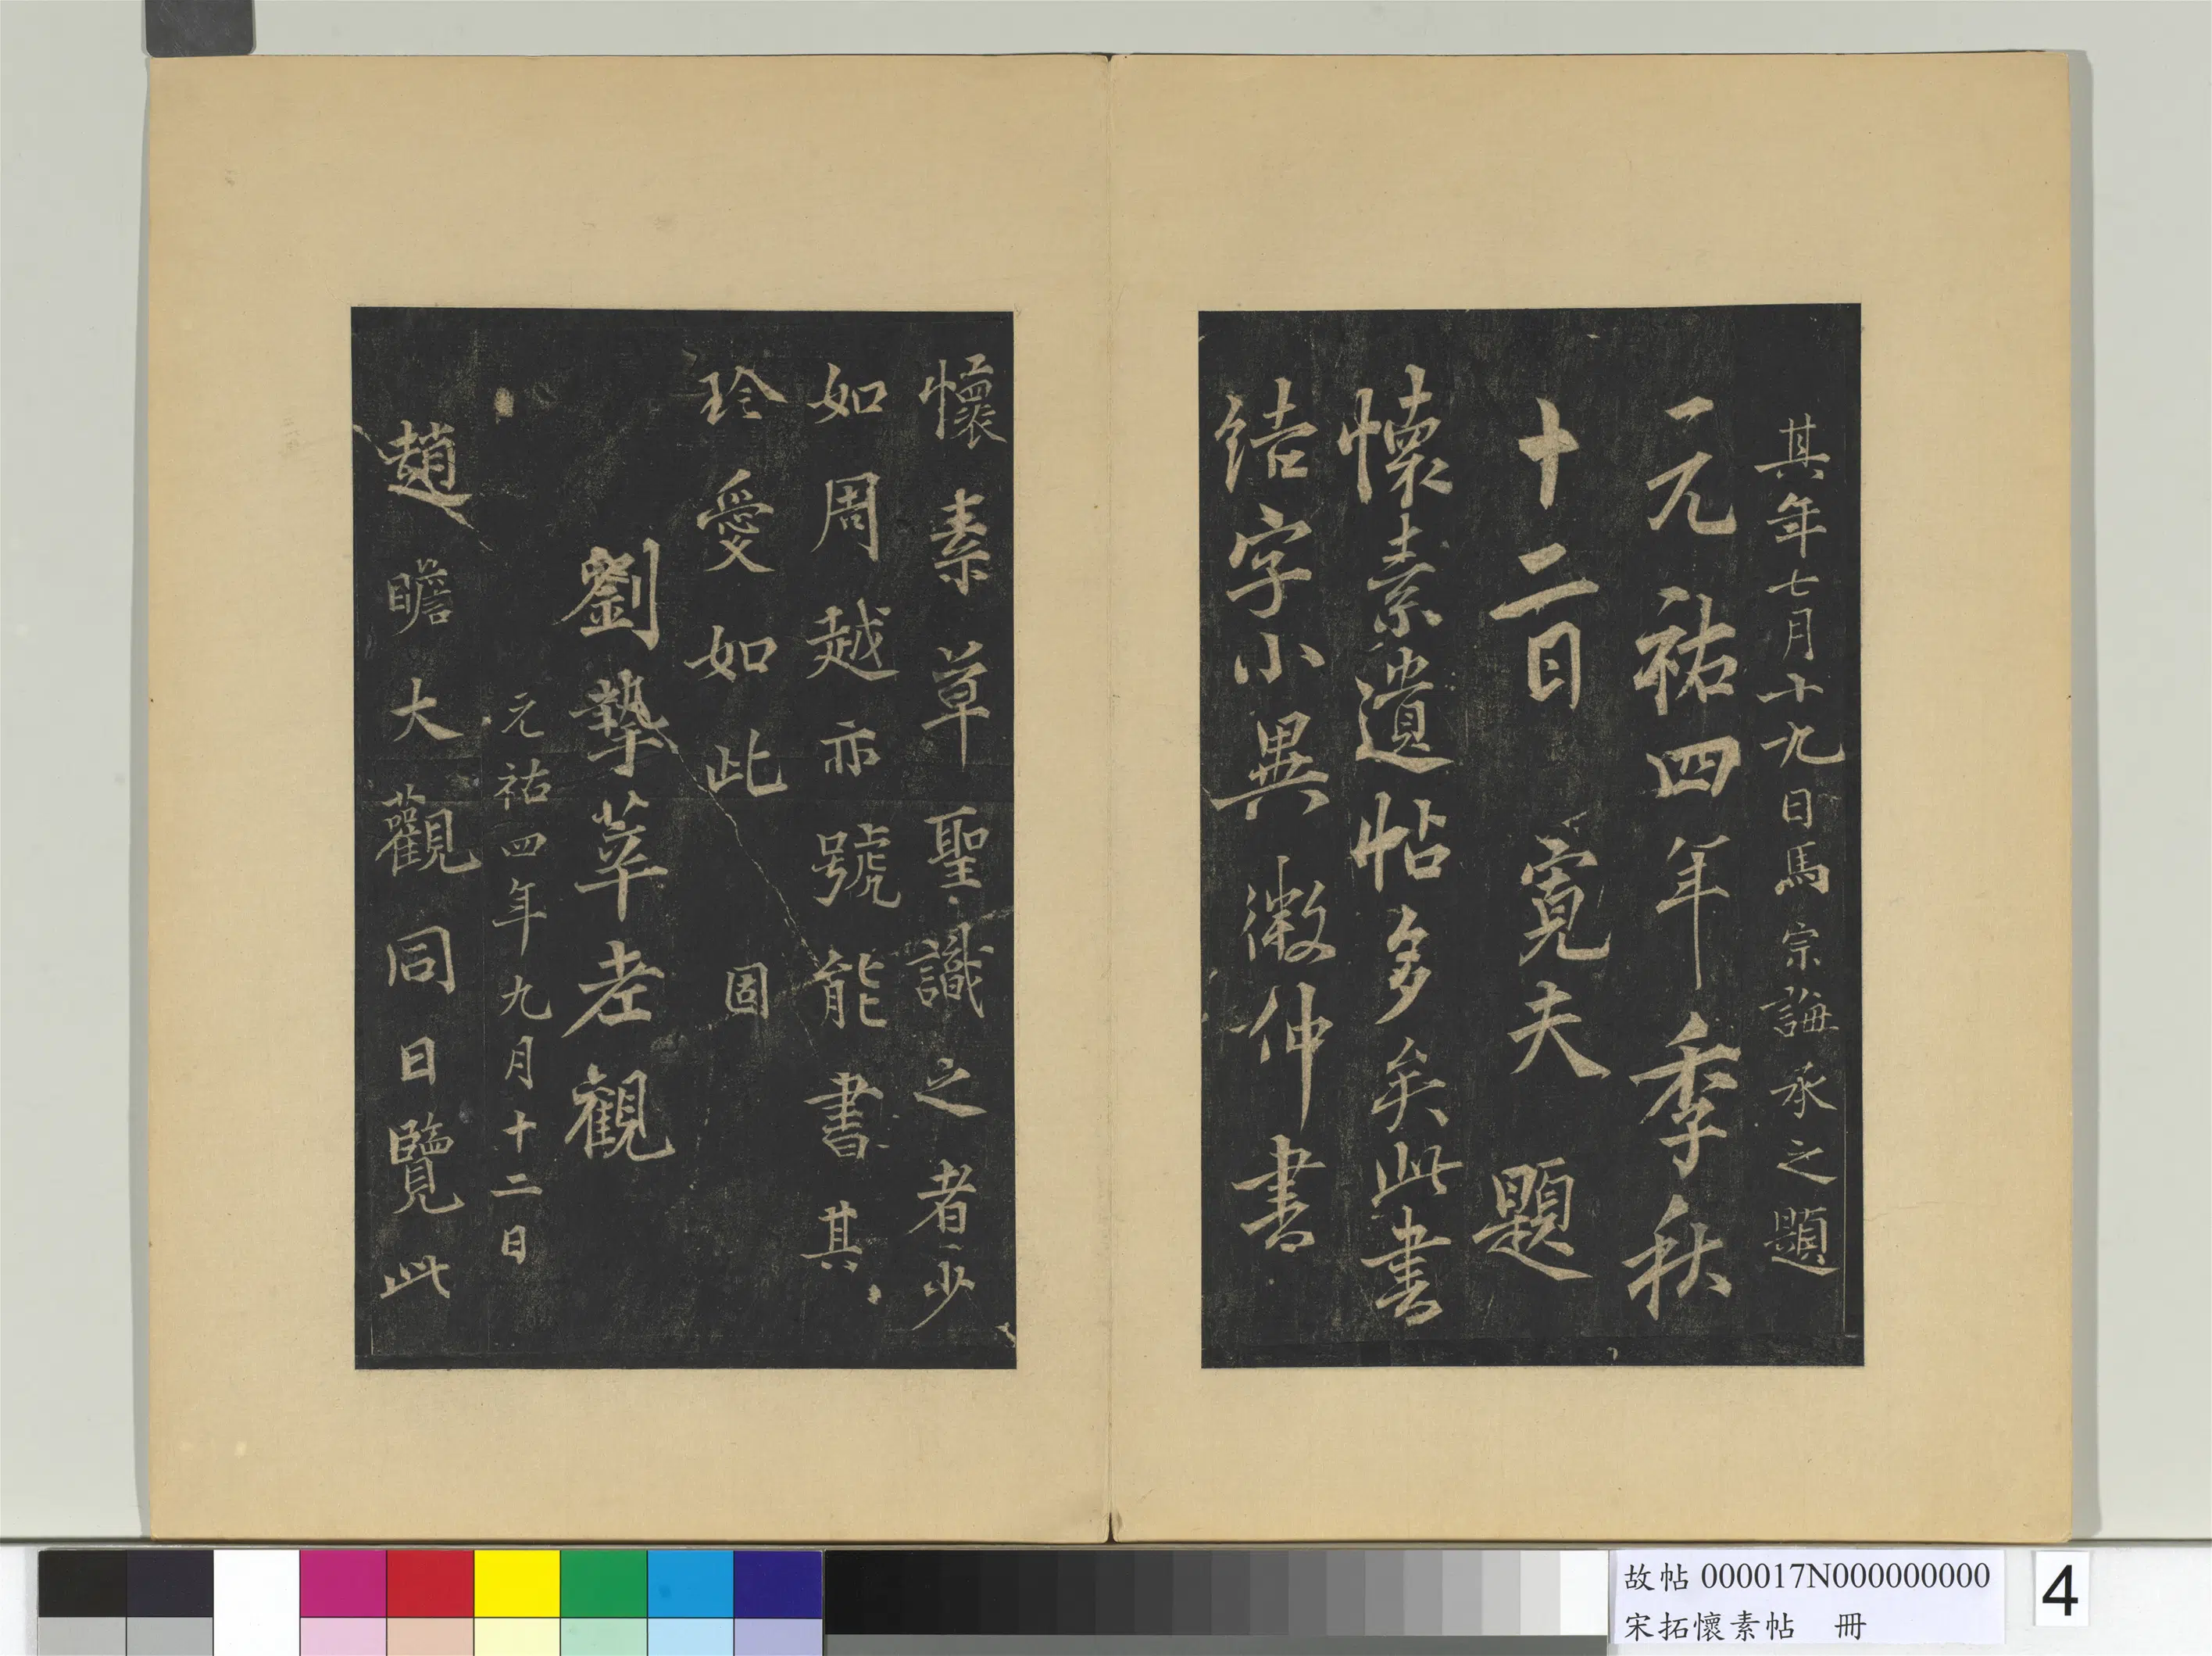 其年七月十九日馬宗誨承之題
元祐四年季秋
十二日寬夫題
懷素遺帖多矣此書
結字小異微仲書
懷素草聖識之者少
如周越亦號能書其
珍愛如此固
劉摯莘老觀
元祐四年九月十二日
趙瞻大觀同日覽此
故帖 000017N000000000
宋拓懷素帖 冊
4